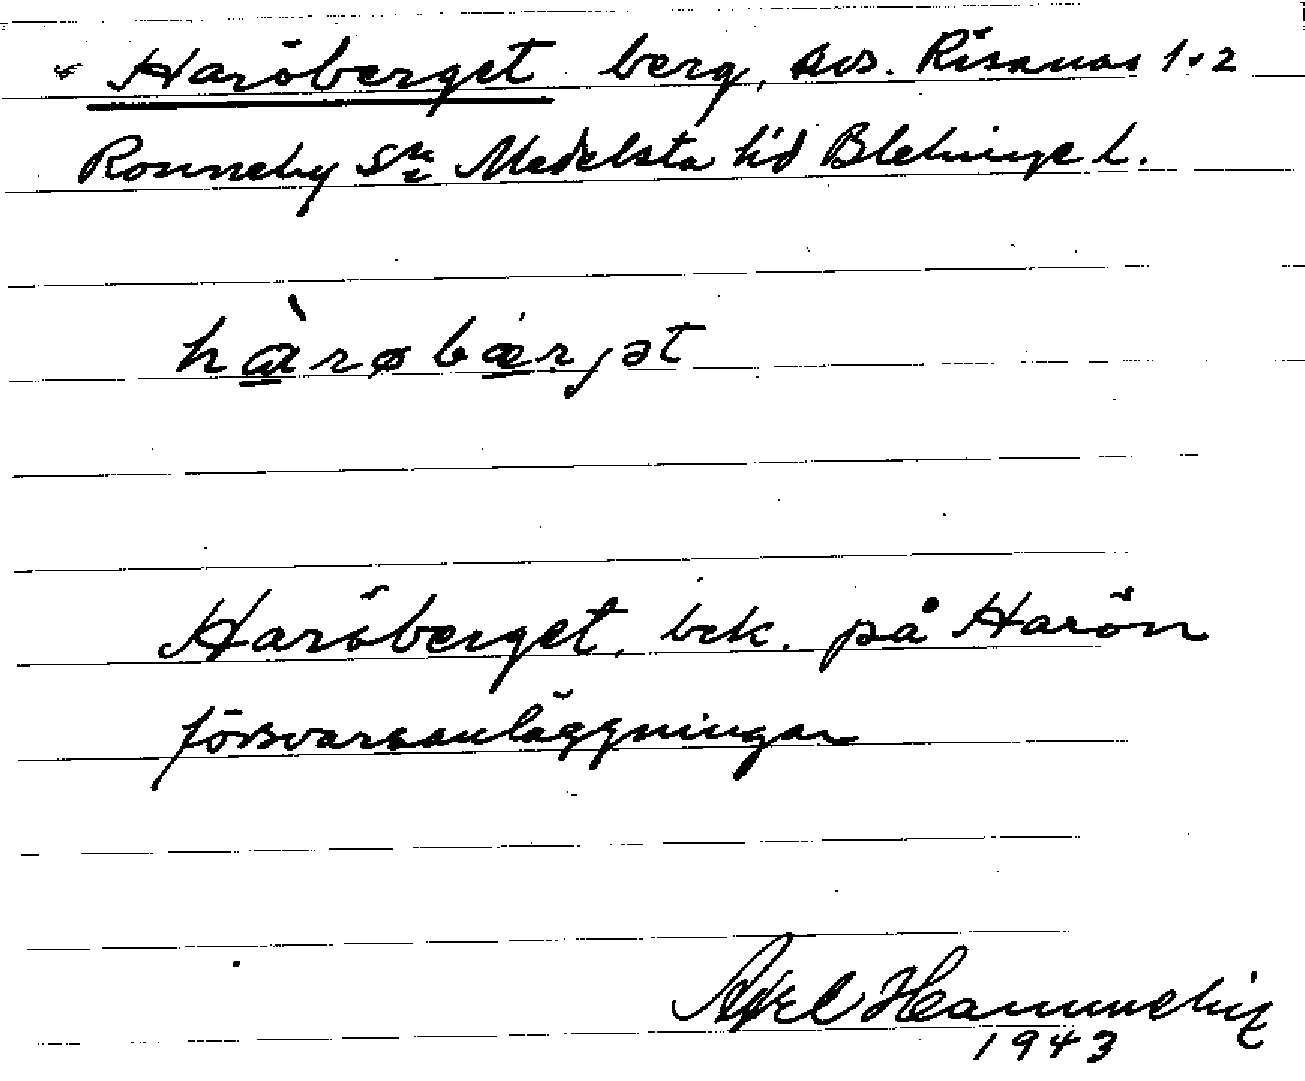 Haröberget berg, sos. Risanäs 1-2
Ronneby Sn Medelsta hd Blekinge l.
hàrøbærjət
Haröberget, bek. på Harön
försvarsanläggningar
Axel
1943